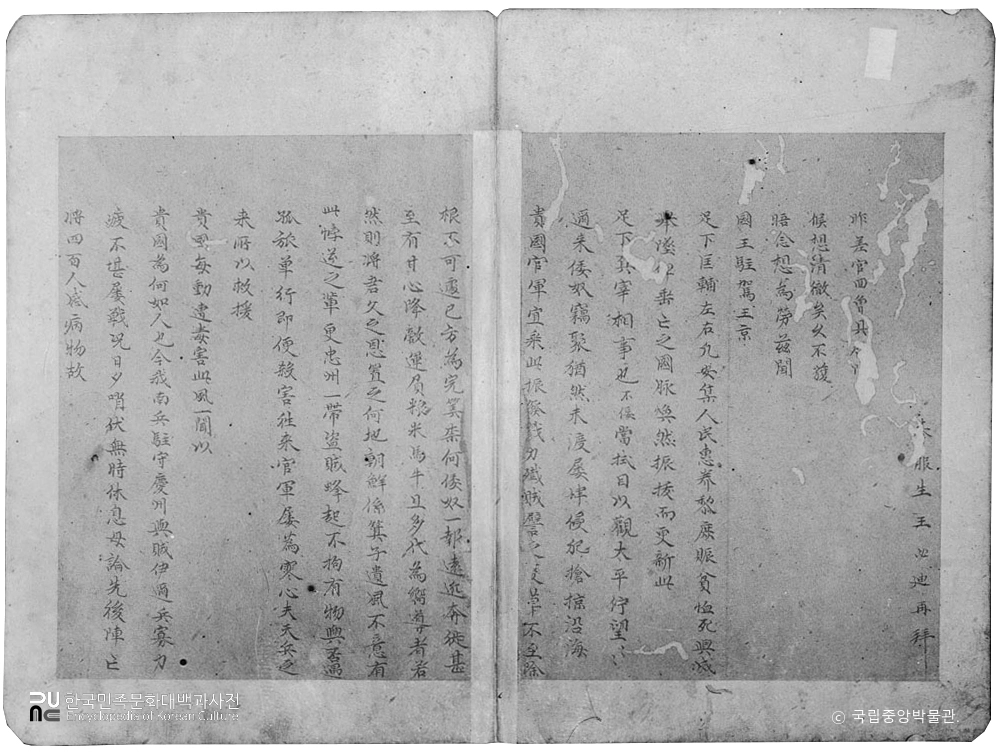 眷服生王必迪再拜
昨差官回曾具
候想清徹矣久不獲
晤念想為勞茲聞
國王駐駕王京
足下匡輔左右凡安集人民惠養黎庶賑貧恤死興滅
舉墜 垂亡之國脉煥然振拔而更新此
足下真宰相事也不侫當拭目以觀太平佇望〻
邇来倭奴竊聚猶然未渡屢肆侵犯搶掠沿海
貴國官軍宜乘此振 戮力殲賊譬之 草不至除
根不可遽已方為完 柰何倭奴一部遠近奔徙甚
至有甘心降敵運負粮米馬牛且多代為嚮導者若
然則将吾父之恩置之何地朝鮮係箕子遺風不意有
此悖逆之軰更忠州一帶盜賊蜂起不拘有物與否遇
孤旅單行即便殺害徃来官軍屢為寒心夫天兵之
来所以救援
貴國每動遭毒害此風一聞以
貴國為何如人也今我南兵駐守慶州與賊伊邇兵寡力
疲不堪屢戰况日夕哨伏無時休息毋論先後陣亡
將四百人底病物故
한국민족문화대백과사전
Encyclopedia of Korean Culture
© 국립중앙박물관.